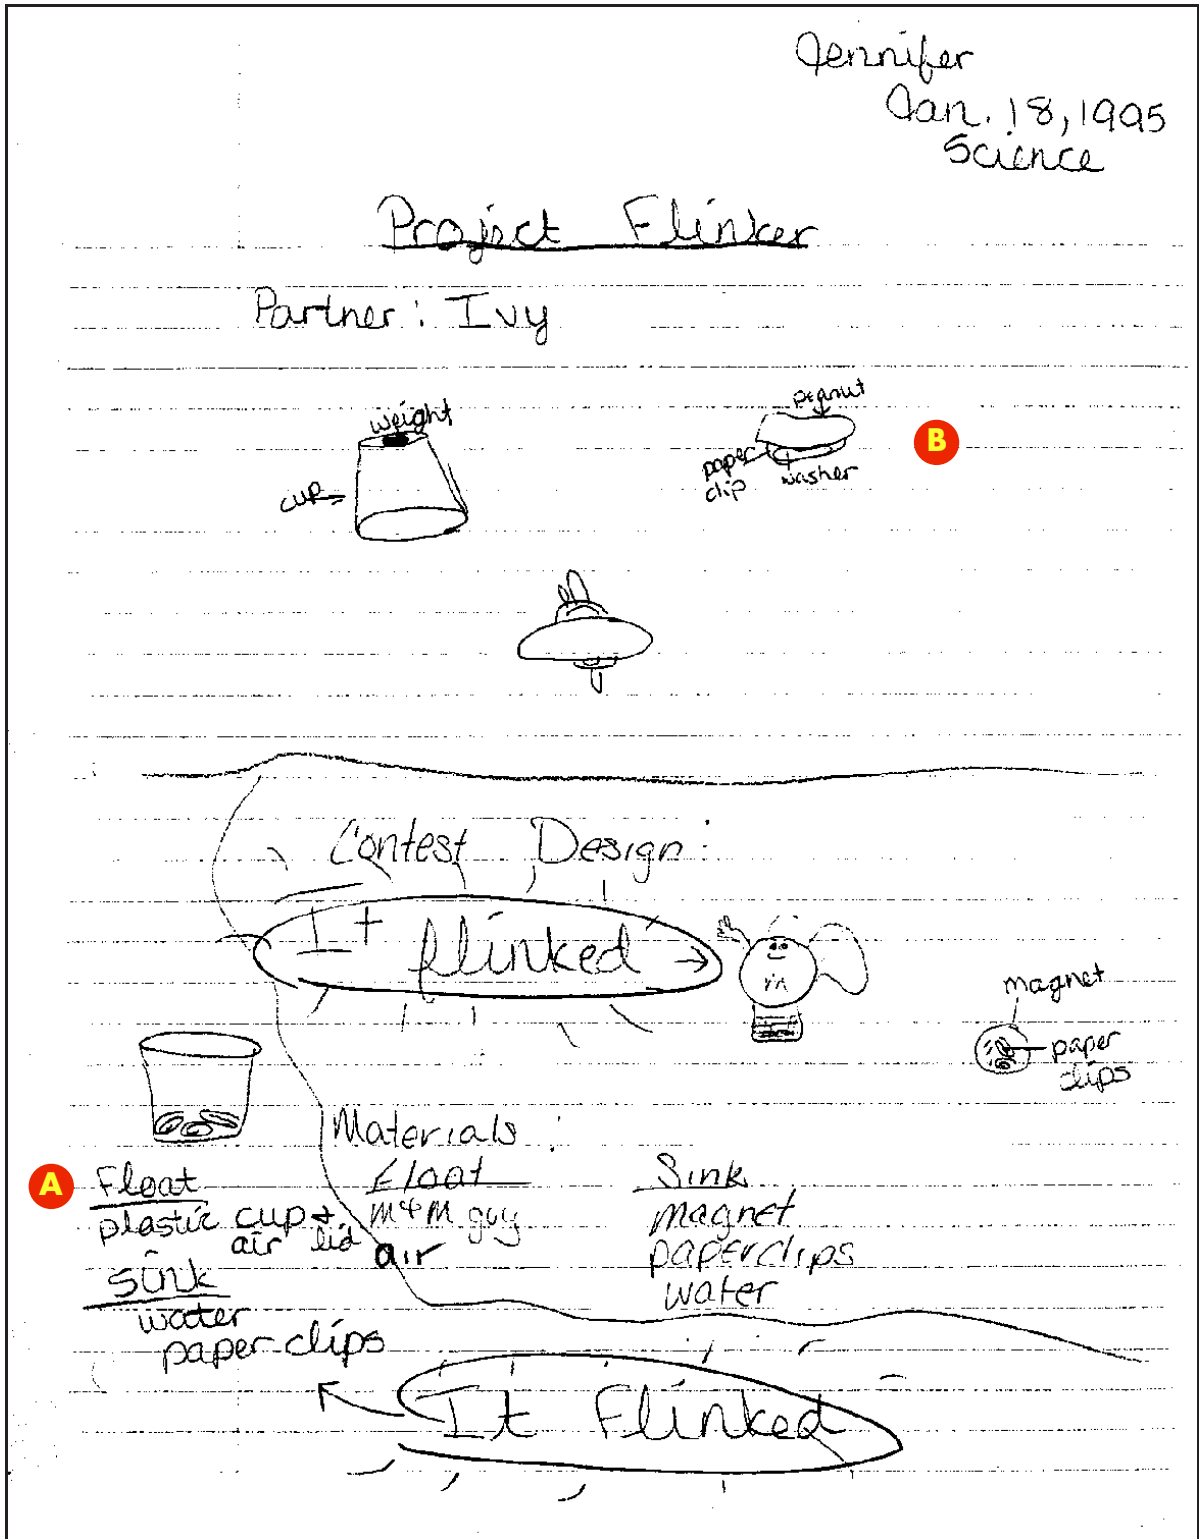 Jennifer
Jan. 18, 1995
Science
Project Flinker
Partner: Ivy
weight
cup
peanut
paper
clip
washer
B
Contest Design:
It flinked
m
magnet
paper
clips
Materials:
A
Float
plastic cup + lid
air
sink
water
paper clips
Float
M+M guy
air
Sink
magnet
paperclips
water
It Flinked